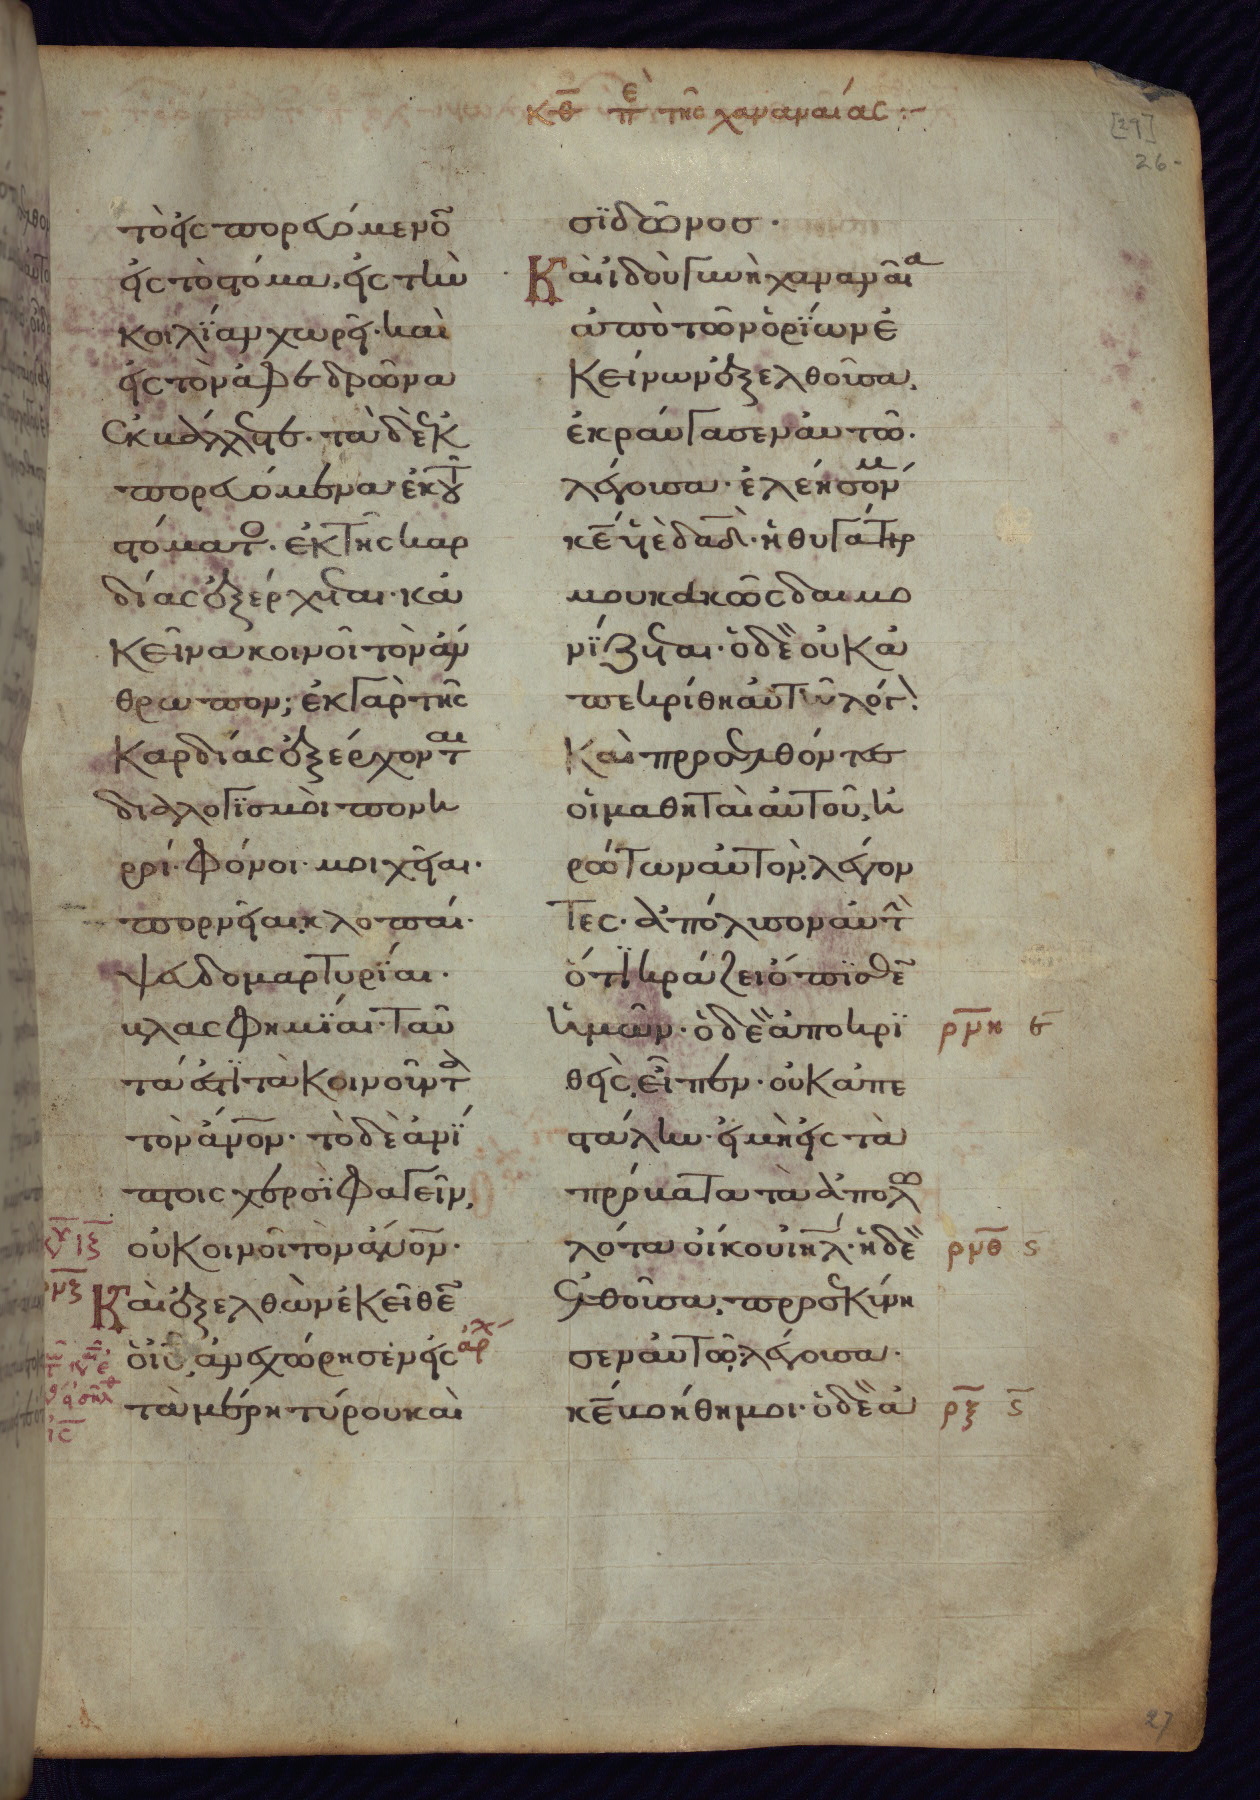 κθ πὲ τῆς χαναναίας :–
[29]
26-
τὸ εἰς πορευόμενο̅
εἰς τὸ στόμα, εἰς τὴν
κοιλΐαν χωρεῖ· καὶ
εἰς τὸν ἀφεδρῶνα
ἐκβάλλεται· τὰ δὲ ἐκ
πορευόμενα ἐκ τ̂
στόματο· ἐκ τῆς καρ
δίας ἐξέρχεται· κἀ
κεῖνα κοινοῖ τὸν ἄν
θρωπον; ἐκ γὰρ τῆς
καρδίας ἐξέρχονται
διαλογϊσμοὶ πονη
ροί· φόνοι· μοιχεῖαι·
πορνεῖαι, κλοπαί·
ψευδομαρτυρΐαι·
βλασφημΐαι· ταῦ
τά ἐστϊ τὰ κοινοῦντα
τὸν ἄν̅ο̅ν· τὸ δὲ ἀνΐ
πτοις χερσῒ φαγεῖν,
οὐ κοινοῖ τὸν ἄν̅ο̅ν·
Καὶ ἐξελθὼν ἐκεῖθε̅
ὁ ι̅ς̅, ἀνεχώρησεν εἰς
τὰ μέρη τύρου καὶ
σϊδῶνοσ·
Καὶ ἰδοὺ γυνὴ χαναναῖα
ἀπὸ τῶν ὁρΐων ἐ
κείνων ἐξελθοῦσα,
ἐκραύγασεν αὐτῶ·
λέγουσα· ἐλέησόν μ
κ̅ε̅ υἱὲ δα̅δ̅· ἡ θυγάτηρ
μου κακῶς δαιμο
νΐζεται· ὁ δὲ οὐκ ἀ
πεκρίθη αὐτῆ λόγ·
Καὶ προσελθόντες
οἱ μαθηταὶ αὐτοῦ, ἠ
ρώτων αὐτὸν, λέγον
τες· ἀπόλυσον αὐτ̀
ὅτϊ κράζει ὄπϊσθε̅
ἡμῶν· ὁ δὲ ἀποκρϊ
θεὶς, εἶπεν· οὐκ ἀπε
στάλην· εἰ μὴ εἰς τὰ
πρόβατα τὰ ἀπολω
λότα οἴκου ι̅η̅λ̅· ἡ δὲ
ἐλθοῦσα, προσεκύνη
σεν αὐτῶ, λέγουσα·
κ̅ε̅ βοήθη μοι· ὁ δὲ ἀ
ιξ
ρμζ
ἀρχ
ρμη ϛ
ρμθ ϛ
ρξ ϛ
27